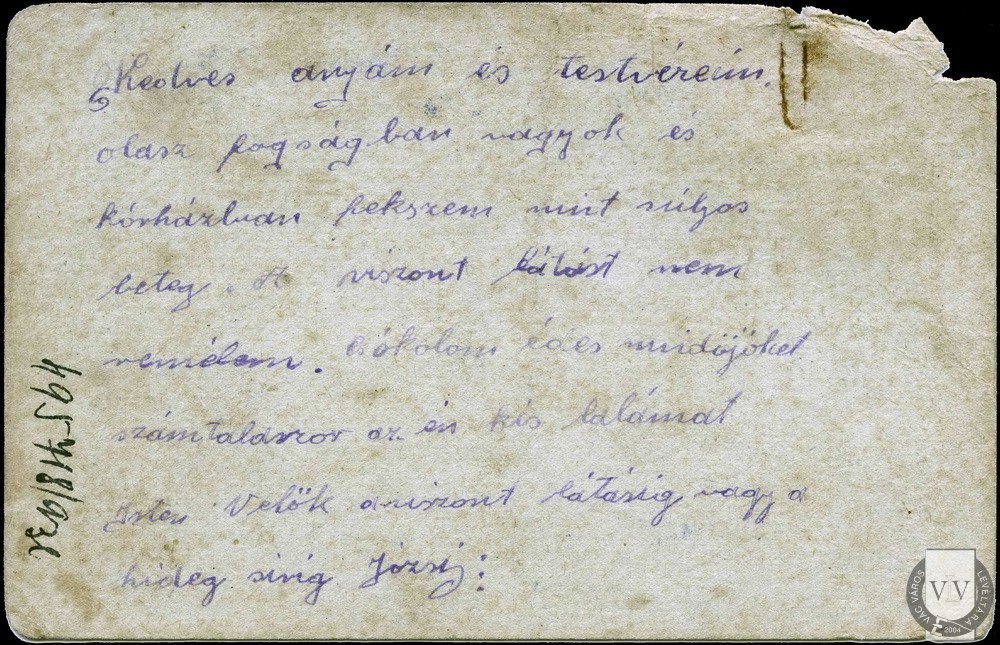 Kedves anyám és testvéreim.
olasz fogságban vagyok és
kórházban fekszem mint súljos
beteg. A viszont látást nem
remélem. csókolom édes mindőjöket
számtalaszor az én kis lalámat
Isten Velök aviszont látásig vagy a
hideg sirig Józsij:
VÁC VÁROS LEVÉLTÁRA
VV
2004